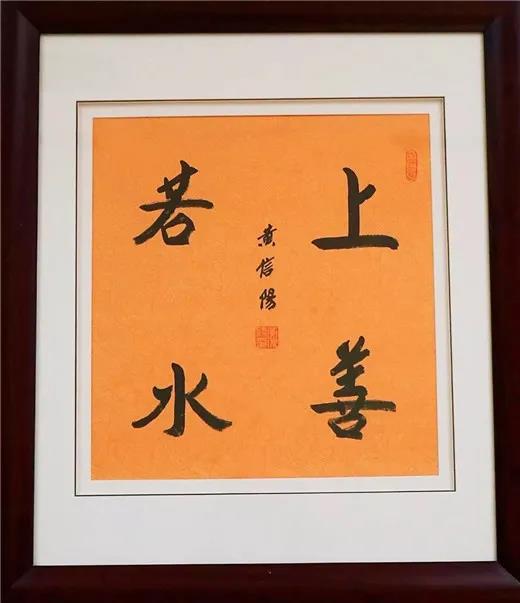 上善
若水
黄信陽